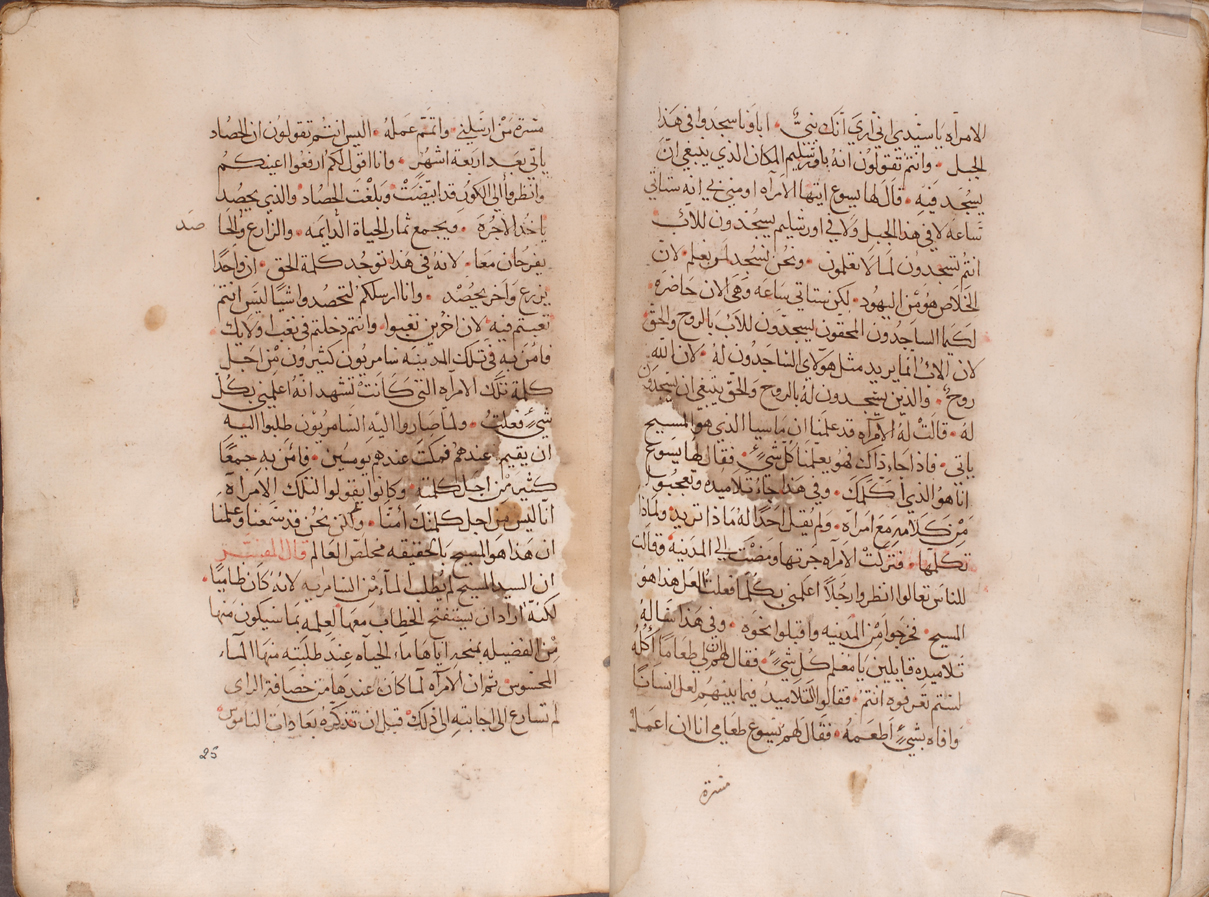 الامرآه يا سيدي اني اري آنك نبيٌ • اباونا سجدوا في هذا
الجبل • وانتم تقولون انه باورشليم المكان الذي ينبغي ان
يسجد فيه • قال لها يسوع ايتها الامرآه اومني بي انه ستاتي
ساعه لا في هذا الجبل ولا في اورشليم يسجدون للآب
انتم تسجدون لما لا تعلمون • ونحن نسجد لمن نعلم • لان
الخلاص هو من اليهود • لكن ستاتي ساعه وهي الان حاضره
لكيما الساجدون المحقون يسجدون للاب بالروح والحق
لان الاب انما يريد مثل هولاي الساجدون له • لان الله
روح • والذين يسجدون له بالروح والحق ينبغي ان يسجدون
له • قالت له الامرآه قد علمنا ان ماسيا الذي هو المسيح
ياتي • فاذا جاء ذاك فهو يعلمنا كل شيء • فقال لها يسوع
انا هو الذي اكلمك • وفي هذا جاء تلاميذه وتعجبوا
من كلامه مع امرآه • ولم يقل احدا له ماذا تريد • ولماذا
تكلمها • فتركت الامرآه جرتها ومضت الي المدينه وقالت
للناس تعالوا انظروا رجلا اعلمني بكلما فعلت لعل هذا هو
المسيح • فخرجوا من المدينه واقبلوا نحوه • وفي هذا ساله
تلاميذه قايلين يا معلم كل شيء • فقال لهم ان لي طعاما اكله
لستم تعرفوه انتم • فقالوا التلاميد فيما بينهم لعل انسانا
وافاه بشيء اطعمه • فقال لهم يسوع طعامي انا ان اعمل
مسرة
مسرة من ارسلني • واتمم عمله • اليس انتم تقولون ان الحصاد
ياتي بعد اربعة اشهر • وانا اقول لكم ارفعوا اعينكم
وانظروا الي الكور قد ابيضت وبلغت الحصاد والذي يحصد
ياخذ الاجره • ويجمع ثمار الحياة الدايمه • والزارع والحا
صد
يفرحان معا • لانه في هذا توجد كلمة الحق • ان واحدا
يزرع واخر يحصد • وانا ارسلكم لتحصدوا شيا ليس انتم
تعبتم فيه • لان اخرين تعبوا • وانتم دخلتم في تعب اولايك •
فامن به في تلك المدينه سامريون كثيرون من اجل
كلمة تلك الامرآه التي كانت تشهد انه اعلمني بكل
شيء فعلت • ولما صاروا اليه السامريون طلبوا اليه
ان يقيم عندهم فمكث عندهم يومين • فامن به جمعا
كثير من اجل كلمته • وكانوا يقولوا لتلك الامرآة
انا ليس من اجل كلمتك امنا • ولكن نحن قد سمعنا وعلمنا
ان هذا هو المسيح بالحقيقه مخلص العالم قال المفسر
ان السيد المسيح لم يطلب الماء من السامريه لانه كان ظاميا •
لكنه اراد ان يستفتح الخطاب معها لعلمه بما سيكون منها
من الفضيله بمنحه اياها ماء الحياه عند طلبته منها الماء
المحسوس ثم ان الامرآه لما كان عندها من خصافة الراي
لم تسارع الي اجابته الي ذلك قبل ان تذكره بعادات الناموس
25